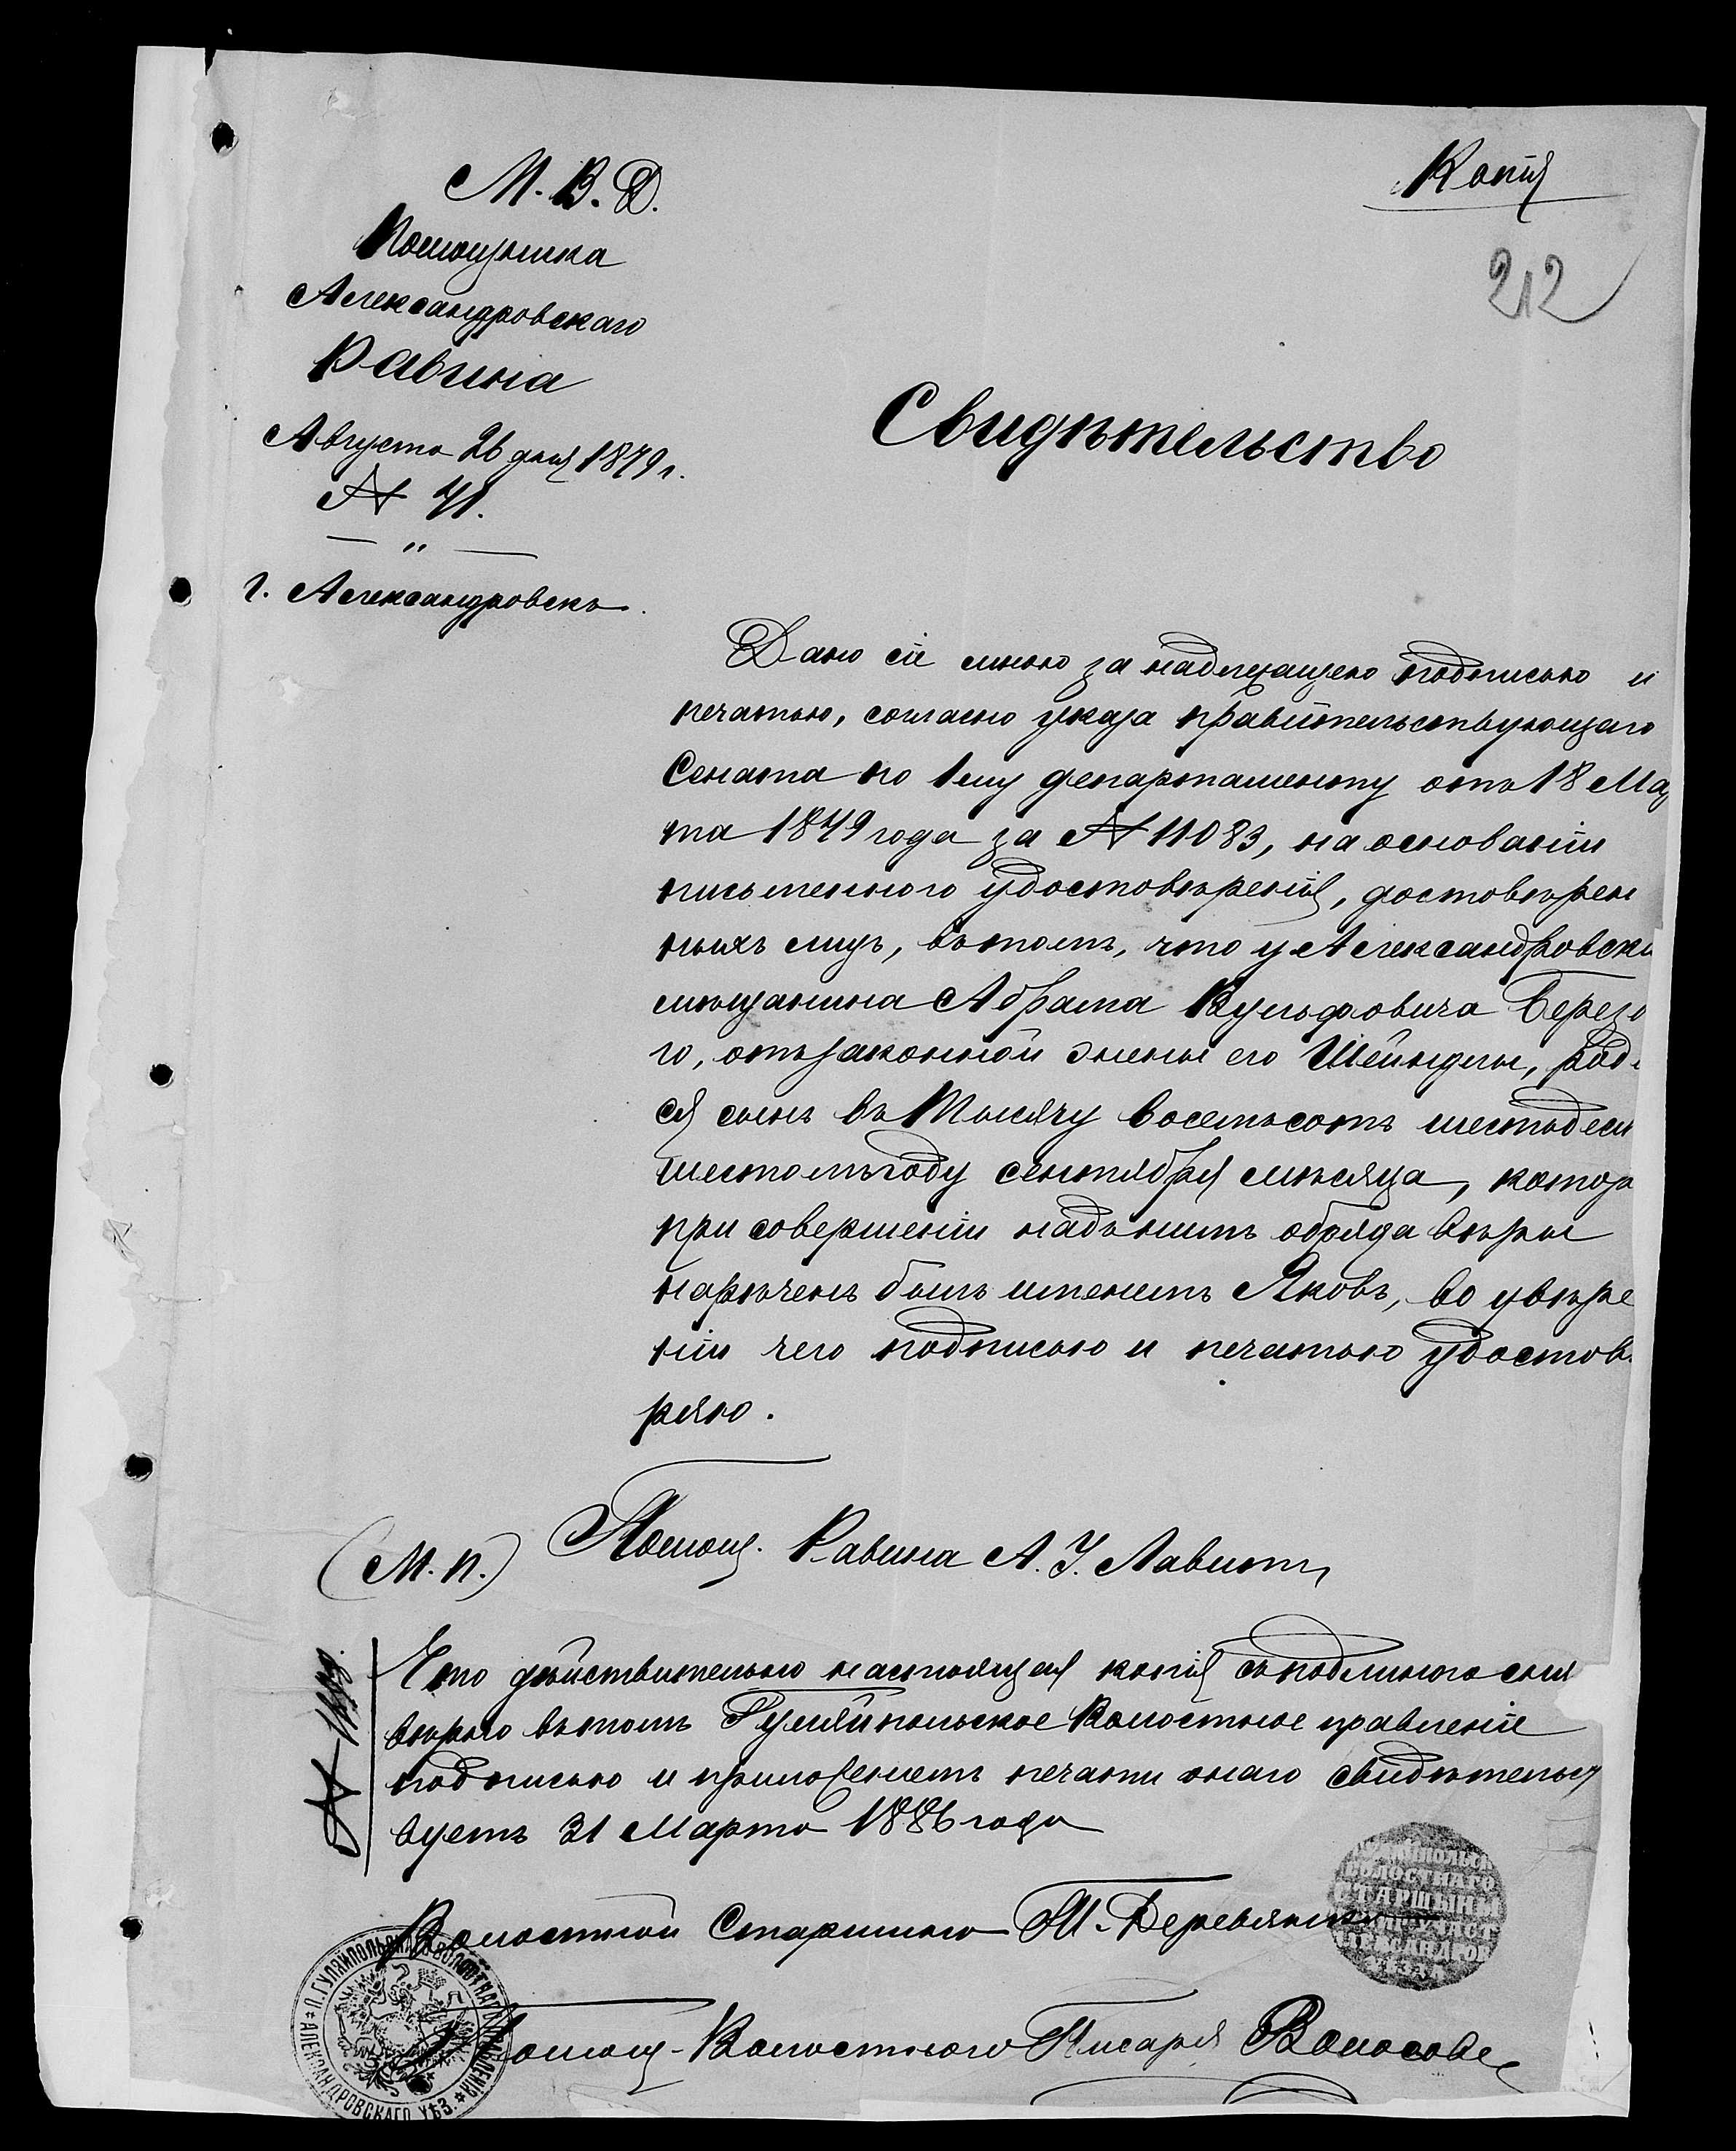 М. В. Д.
Помощника
Александровскаго
Равина
Августа 26 дня 1879 г.
№ 71.
— " —
г. Александровскъ.
Копія
212
Свидѣтельство
Дано сіе мною за надлежащею подписью и
печатью, согласно указа правительствующаго
Сената по 1му департаменту отъ 18 Мар
та 1879 года за № 11083, на основаніи
письменного удостовѣренія, достовѣрен
ныхъ лицъ, въ томъ, что у Александровск
мѣщанина Абрама Вульфовича Березо
го, отъ законной жены его Шейнды, род
ся сынъ въ Тысячу восемьсотъ шестьдеся
шестомъ году сентября мѣсяца, котор
при совершеніи надъ нимъ обряда вѣры
нарѣченъ былъ именемъ Яковъ, во увѣре
ніи чего подписью и печатью удостов
ряю.
(М. П.) Помощ. Равина А. У. Лавитъ
Что дѣйствительно настоящая копія съ подлиного сня
вѣрно въ томъ Гуляйпольское Волостное правленіе
подписью и приложеніемъ печати онаго свидѣтельст
вуетъ 31 Марта 1886 года
№
Волостной Старшина М. Деревянко
Помощ. Волостного Писаря Волосове
П. ГУЛЯЙПОЛЬСКАГО ВОЛОСТНАГО ПРАВЛЕНІЯ * АЛЕКСАНДРОВСКАГО УѢЗ. *
ВОЛОСТНАГО
СТАРШИНЫ
УѢЗДА